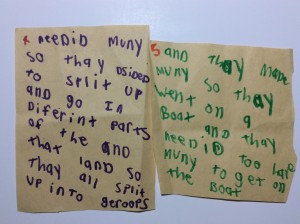 4 needid muny
so thay dsided
to split up
and go in
diferint parts
of the and
that land so
thay all split
up into
geroops
5 and thay made
muny so thay
went on a
Boat and thay
needid too have
muny to get on
the Boat